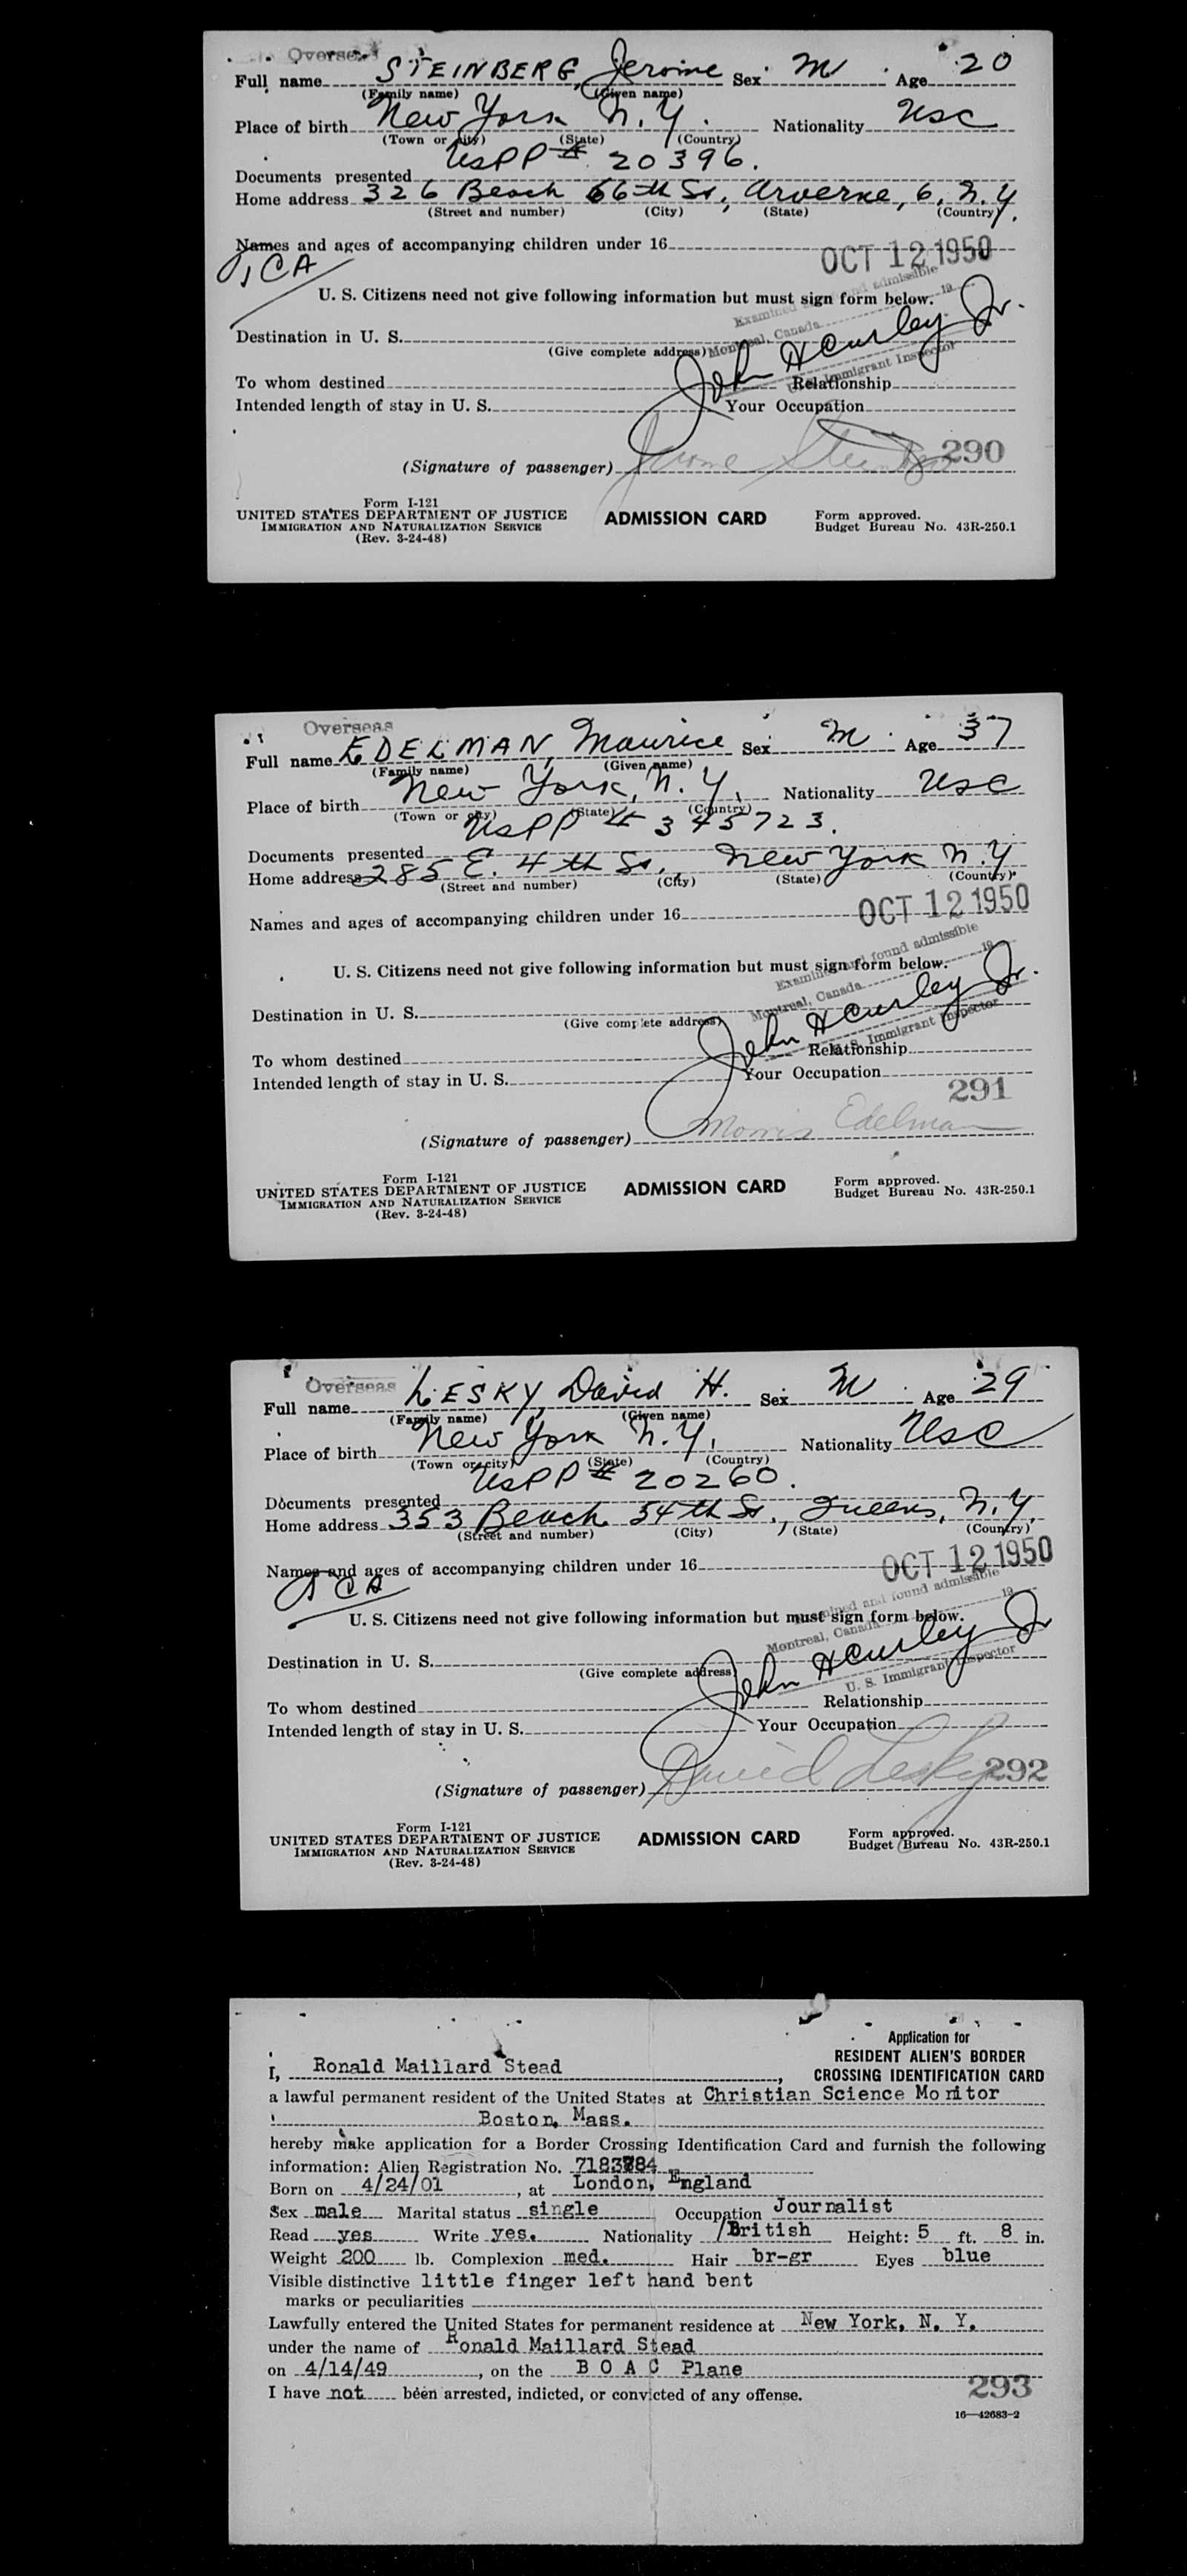 Overseas
Full name STEINBERG, Jerome Sex M Age 20
(Family name) (Given name)
Place of birth New York N.Y. Nationality USC
(Town or city) (State) (Country)
USPP # 20396.
Documents presented
Home address 326 Beach 66th St., Arverne, 6, N.Y.
(Street and number) (City) (State) (Country)
Names and ages of accompanying children under 16
OCT 12 1950
TCA
Examined and found admissible
U. S. Citizens need not give following information but must sign form below.
Montreal, Canada 19
Destination in U. S.
(Give complete address)
John H Curley Jr.
U. S. Immigrant Inspector
To whom destined Relationship
Intended length of stay in U. S. Your Occupation
290
(Signature of passenger) Jerome Steinberg
Form I-121
UNITED STATES DEPARTMENT OF JUSTICE
IMMIGRATION AND NATURALIZATION SERVICE
(Rev. 3-24-48)
ADMISSION CARD
Form approved.
Budget Bureau No. 43R-250.1
Overseas
Full name EDELMAN, Maurice Sex M Age 37
(Family name) (Given name)
Place of birth New York, N.Y. Nationality USC
(Town or city) (State) (Country)
USPP # 345723.
Documents presented
Home address 285 E. 4th St., New York N.Y
(Street and number) (City) (State) (Country)
Names and ages of accompanying children under 16
OCT 12 1950
Examined and found admissible
U. S. Citizens need not give following information but must sign form below.
Montreal, Canada 19
Destination in U. S.
(Give complete address)
John H Curley Jr.
U. S. Immigrant Inspector
To whom destined Relationship
Intended length of stay in U. S. Your Occupation
291
(Signature of passenger) Morris Edelman
Form I-121
UNITED STATES DEPARTMENT OF JUSTICE
IMMIGRATION AND NATURALIZATION SERVICE
(Rev. 3-24-48)
ADMISSION CARD
Form approved.
Budget Bureau No. 43R-250.1
Overseas
Full name LESKY, David H. Sex M Age 29
(Family name) (Given name)
Place of birth New York N.Y. Nationality USC
(Town or city) (State) (Country)
USPP # 20260.
Documents presented
Home address 353 Beach 54th St., Queens, N.Y.
(Street and number) (City) (State) (Country)
Names and ages of accompanying children under 16
OCT 12 1950
TCA
Examined and found admissible
U. S. Citizens need not give following information but must sign form below.
Montreal, Canada 19
Destination in U. S.
(Give complete address)
John H Curley Jr
U. S. Immigrant Inspector
To whom destined Relationship
Intended length of stay in U. S. Your Occupation
(Signature of passenger) David Lesky 292
Form I-121
UNITED STATES DEPARTMENT OF JUSTICE
IMMIGRATION AND NATURALIZATION SERVICE
(Rev. 3-24-48)
ADMISSION CARD
Form approved.
Budget Bureau No. 43R-250.1
Application for
RESIDENT ALIEN'S BORDER
CROSSING IDENTIFICATION CARD
I, Ronald Maillard Stead,
a lawful permanent resident of the United States at Christian Science Monitor
Boston, Mass.
hereby make application for a Border Crossing Identification Card and furnish the following
information: Alien Registration No. 7183784
Born on 4/24/01, at London, England
Sex male Marital status single Occupation Journalist
Read yes Write yes. Nationality British Height: 5 ft. 8 in.
Weight 200 lb. Complexion med. Hair br-gr Eyes blue
Visible distinctive little finger left hand bent
marks or peculiarities
Lawfully entered the United States for permanent residence at New York, N. Y.
under the name of Ronald Maillard Stead
on 4/14/49, on the B O A C Plane
I have not been arrested, indicted, or convicted of any offense.
293
16—42683-2